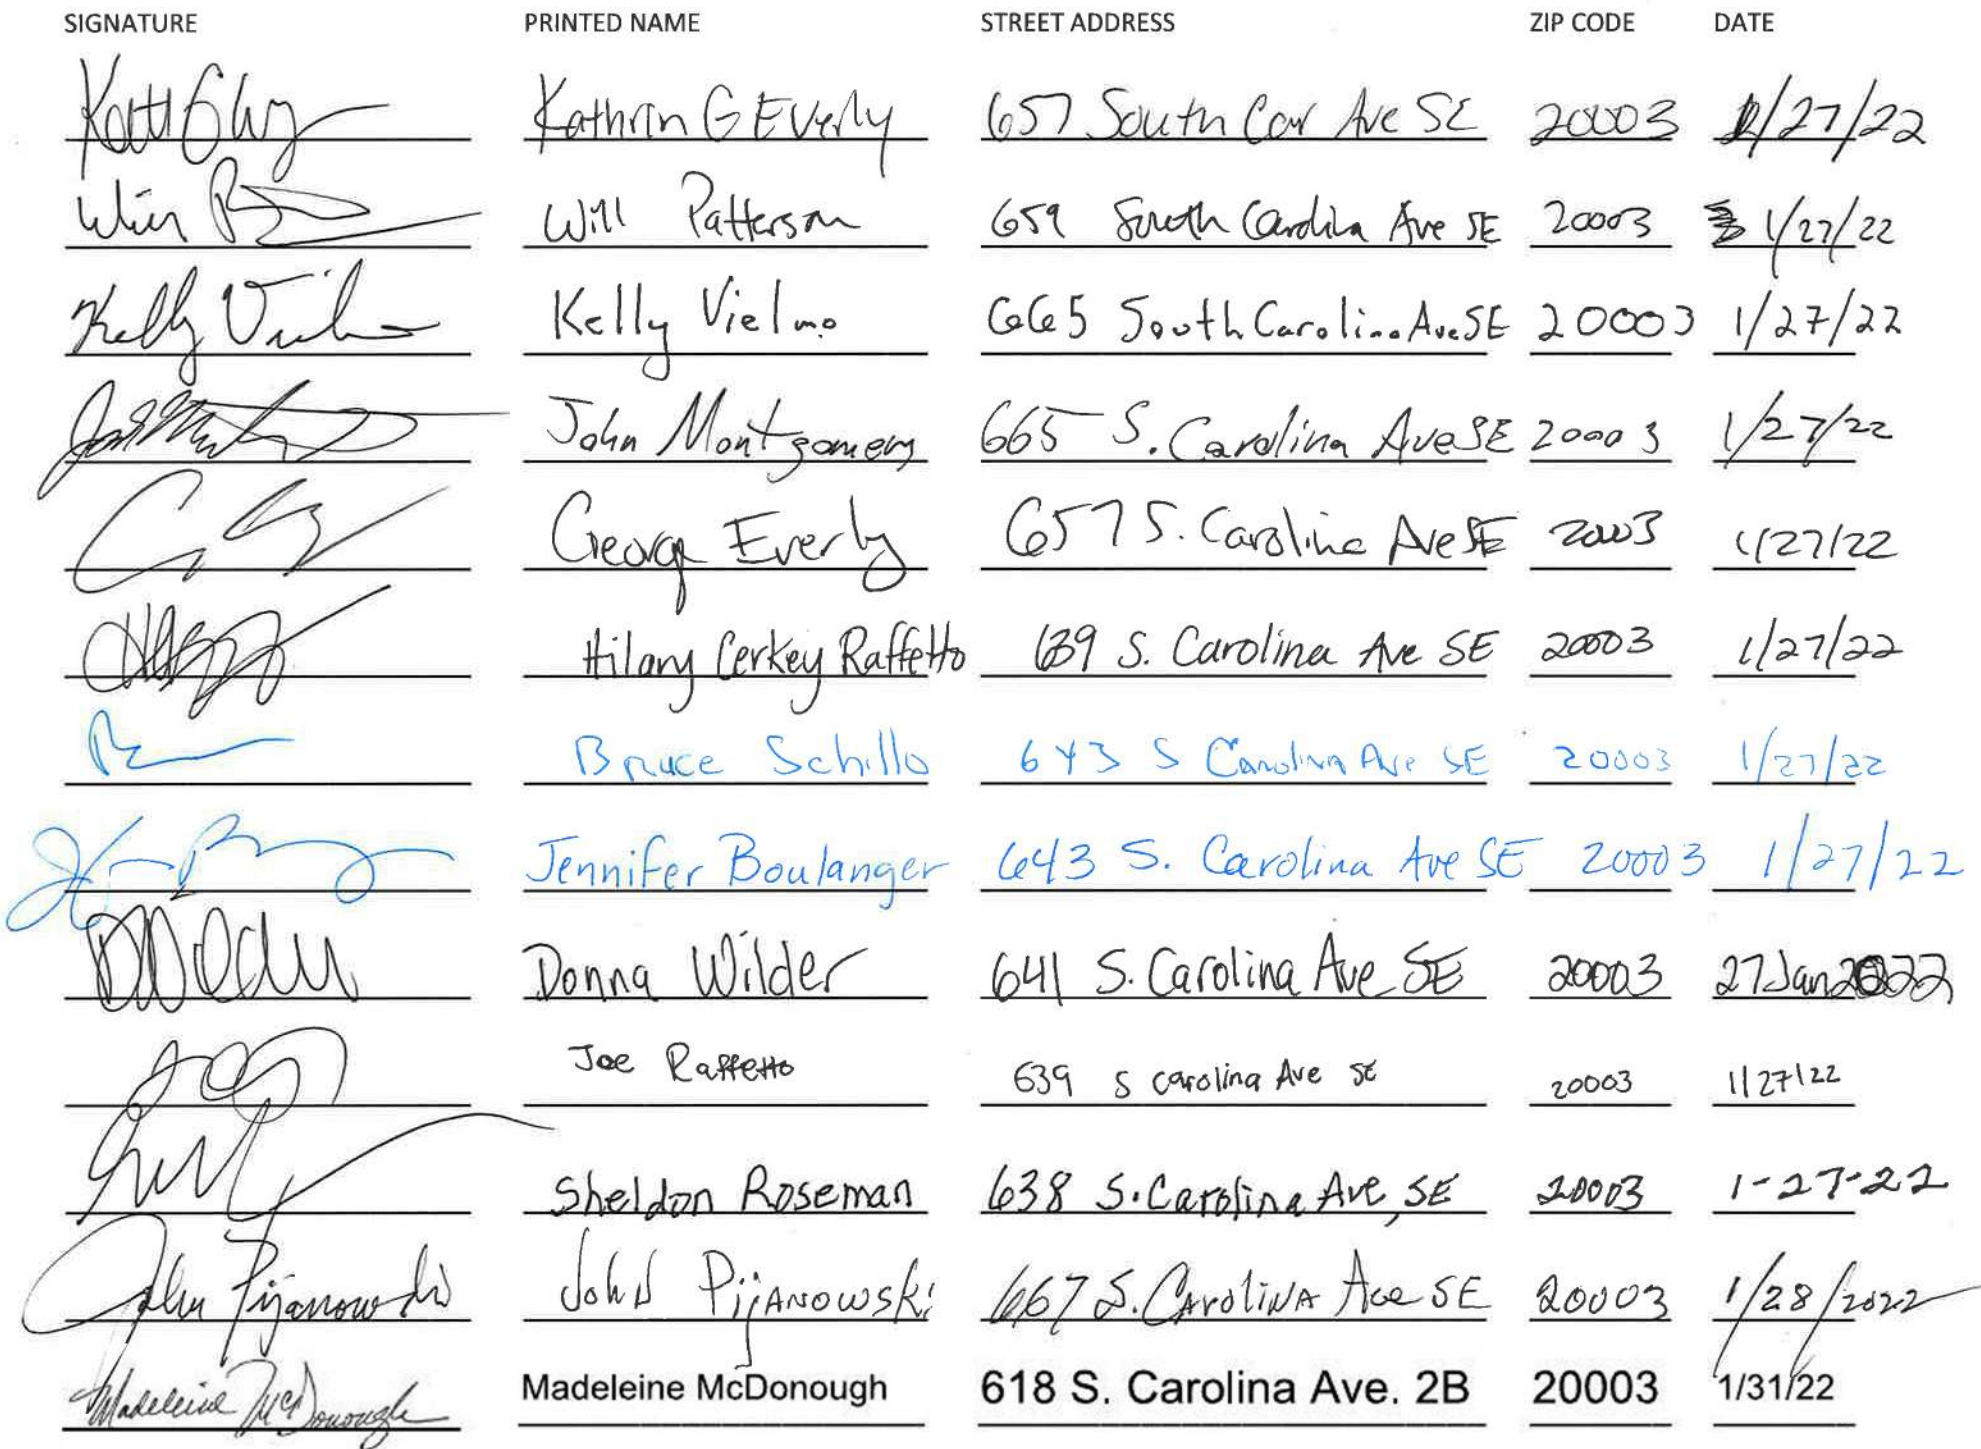 SIGNATURE PRINTED NAME STREET ADDRESS ZIP CODE DATE
Kathrin G Everly 657 South Car Ave SE 20003 1/27/22
Will Patterson 659 South Carolina Ave SE 20003 1/27/22
Kelly Vielmo Kelly Vielmo 665 South Carolina Ave SE 20003 1/27/22
John Montgomery 665 S. Carolina Ave SE 20003 1/27/22
George Everly 657 S. Carolina Ave SE 20003 1/27/22
Hilary Cerkey Raffetto 639 S. Carolina Ave SE 20003 1/27/22
Bruce Schillo 643 S Carolina Ave SE 20003 1/27/22
Jennifer Boulanger 643 S. Carolina Ave SE 20003 1/27/22
Donna Wilder 641 S. Carolina Ave SE 20003 27 Jan 2022
Joe Raffetto 639 S carolina Ave SE 20003 1/27/22
Sheldon Roseman 638 S. Carolina Ave, SE 20003 1-27-22
John Pijanowski John Pijanowski 667 S. Carolina Ave SE 20003 1/28/2022
Madeleine McDonough Madeleine McDonough 618 S. Carolina Ave. 2B 20003 1/31/22